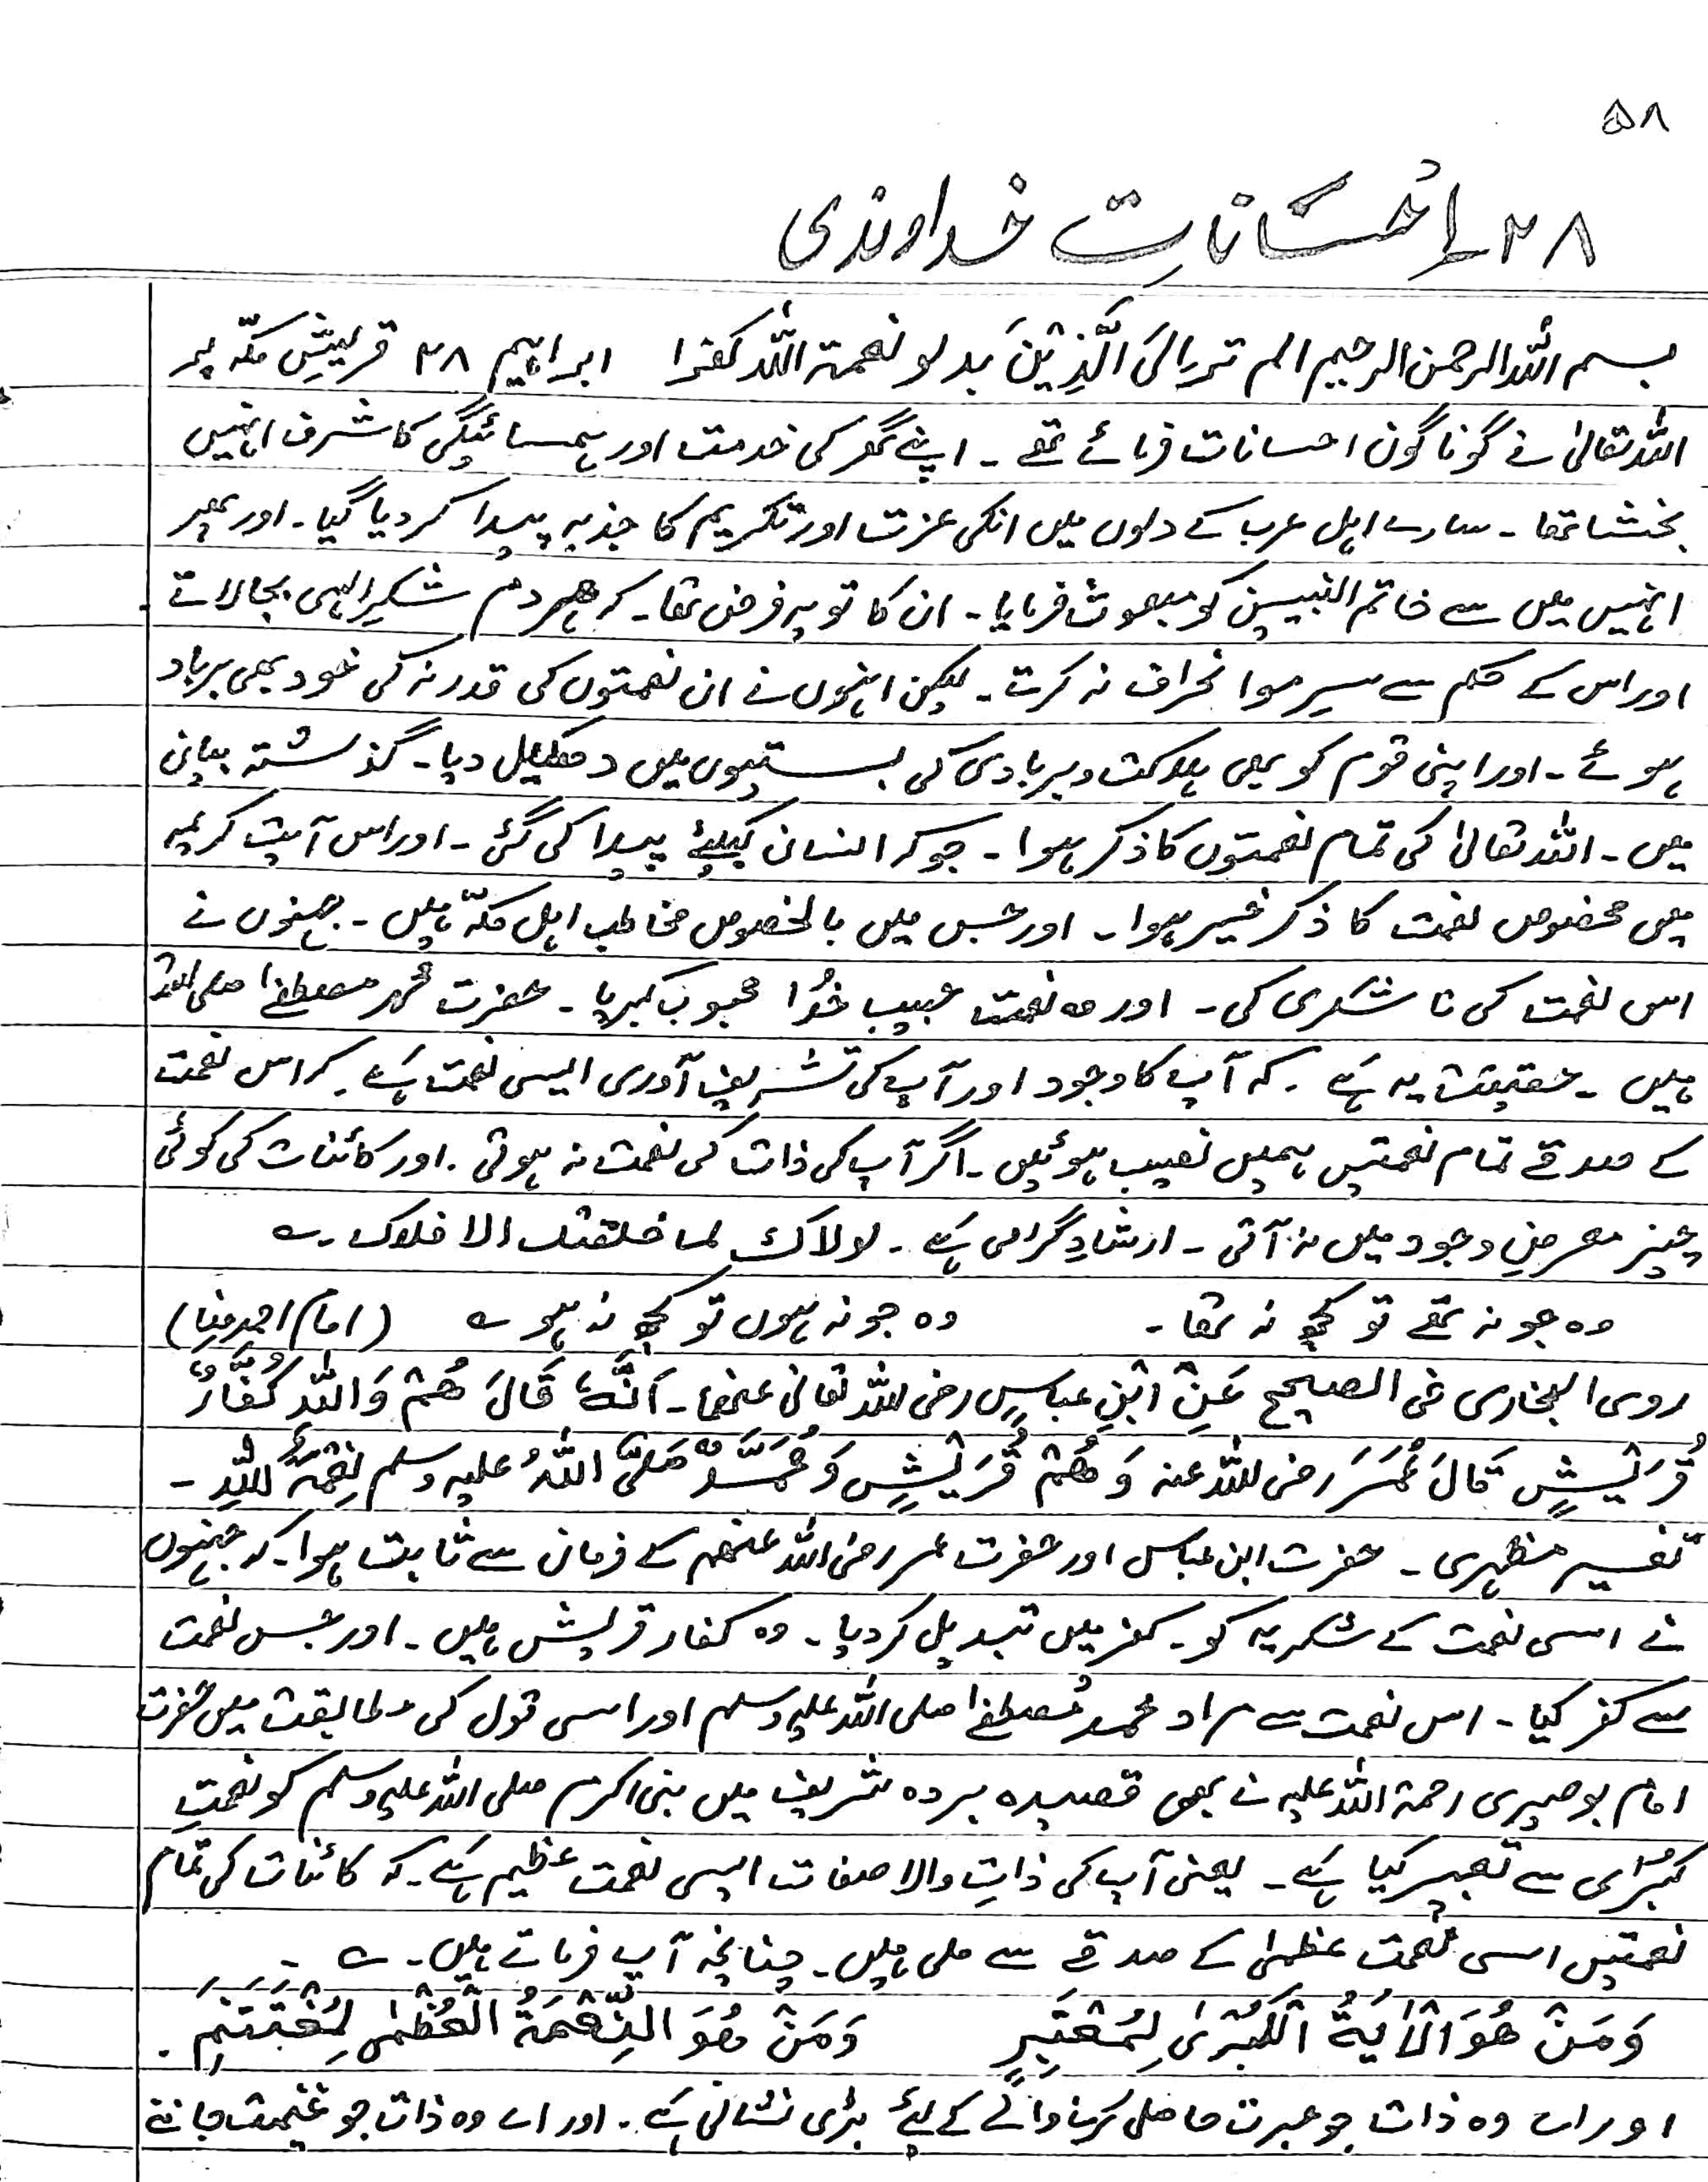 ۵۸
۲۸ احسانات خداوندی
بسم اللہ الرحمن الرحیم الم تر الی الَّذِیْنَ بدلو نعمۃ اللہ کفرا ابراہیم ۲۸ قریشِ مکّہ پر
اللہ تعالیٰ نے گوناگون احسانات فرمائے تھے ۔ اپنے گھر کی خدمت اور ہمسائیگی کا شرف انہیں
بخشا تھا ۔ سارے اہل عرب کے دلوں میں انکی عزت اور تکریم کا جذبہ پیدا کر دیا گیا ۔ اور پھر
انہیں میں سے خاتم النبیین کو مبعوث فرمایا ۔ ان کا تو یہ فرض تھا ۔ کہ ھر دم شکرِ الہی بجا لاتے
اور اس کے حکم سے سرِ موا نحراف نہ کرتے ۔ لیکن انہوں نے ان نعمتوں کی قدر نہ کی خود بھی برباد
ہوئے ۔ اور اپنی قوم کو بھی ہلاکت و بربادی کی بستیوں میں دھکیل دیا ۔ گذشتہ بیان
میں ۔ اللہ تعالیٰ کی تمام نعمتوں کا ذکر ہوا ۔ جو کہ انسان کیلئے پیدا کی گئی ۔ اور اس آیت کریمہ
میں مخصوص نعمت کا ذکر خیر ہوا ۔ اور جس میں بالخصوص مخاطب اہل مکّہ ہیں ۔ جنہوں نے
اس نعمت کی ناشکری کی ۔ اور وہ نعمت حبیب خُدا محبوب کبریا ۔ حضرت محمد مصطفےا صلی اللہ
ہیں ۔ حقیقت یہ ہَے ۔ کہ آپ کا وجود اور آپ کی تشریف آوری ایسی نعمت ہَے ۔ کہ اس نعمت
کے صدقے تمام نعمتیں ہمیں نصیب ہوئیں ۔ اگر آپ کی ذات کی نعمت نہ ہوتی ۔ اور کائنات کی کوئی
چیز معرضِ وجود میں نہ آتی ۔ ارشادِ گرامی ہَے ۔ لولاک لما خلقت الا فلاک ۔ ؎
وہ جو نہ تھے تو کچھ نہ تھا ۔ وہ جو نہ ہوں تو کچھ نہ ہو ؎ (امام احمد رضا)
روی البخاری فی الصیحح عَنْ ابْنِ عباسٍ رضی اللہ تعالیٰ عنھما ۔ اَنَّہٗ قَالَ ھُمْ وَاللہِ کُفَّارُ
قُرَیْشٍ قَالَ عُمَرَ رضی اللہ عنہ وَ ھُمْ قُرَیْشٍ وَ مُحَمَّدٌ صَلیَّ اللہُ علیہ وسلم نِعْمَۃُ اللہِ ۔
تفسیر مظہری ۔ حضرت ابن عباس اور حضرت عمر رضی اللہ عنھم کے فرمان سے ثابت ہوا ۔ کہ جنہوں
نے اسی نعمت کے شکریہ کو ۔ کفر میں تبدیل کر دیا ۔ وہ کفار قریش ہیں ۔ اور جس نعمت
سے کفر کیا ۔ اس نعمت سے مراد محمد مُصطفےا صلی اللہ علیہ وسلم اور اسی قول کی مطابقت میں حضرت
امام بوصیری رحمۃ اللہ علیہ نے بھی قصیدہ بردہ شریف میں نبی اکرم صلی اللہ علیہ وسلم کو نعمتِ
کبُرٰی سے تعبیر کیا ہَے ۔ یعنی آپ کی ذاتِ والا صفات ایسی نعمت عظیم ہَے ۔ کہ کائنات کی تمام
نعمتیں اسی نعمت عظمیٰ کے صدقے سے ملی ہیں ۔ چنانچہ آپ فرماتے ہیں ۔ ؎ ۔
وَ مَنْ ھُوَ الْاٰیَۃُ الْکُبْرٰی لِمُعْتَبِرٍ وَ مَنْ ھُوَ النِّعْمَۃُ الْعُظْمٰی لِمُغْتَنِمٖ ۔
اور اے وہ ذات جو عبرت حاصل کرنے والے کے لیئے بڑی نشانی ہَے ۔ اور اے وہ ذات جو غنیمت جاننے